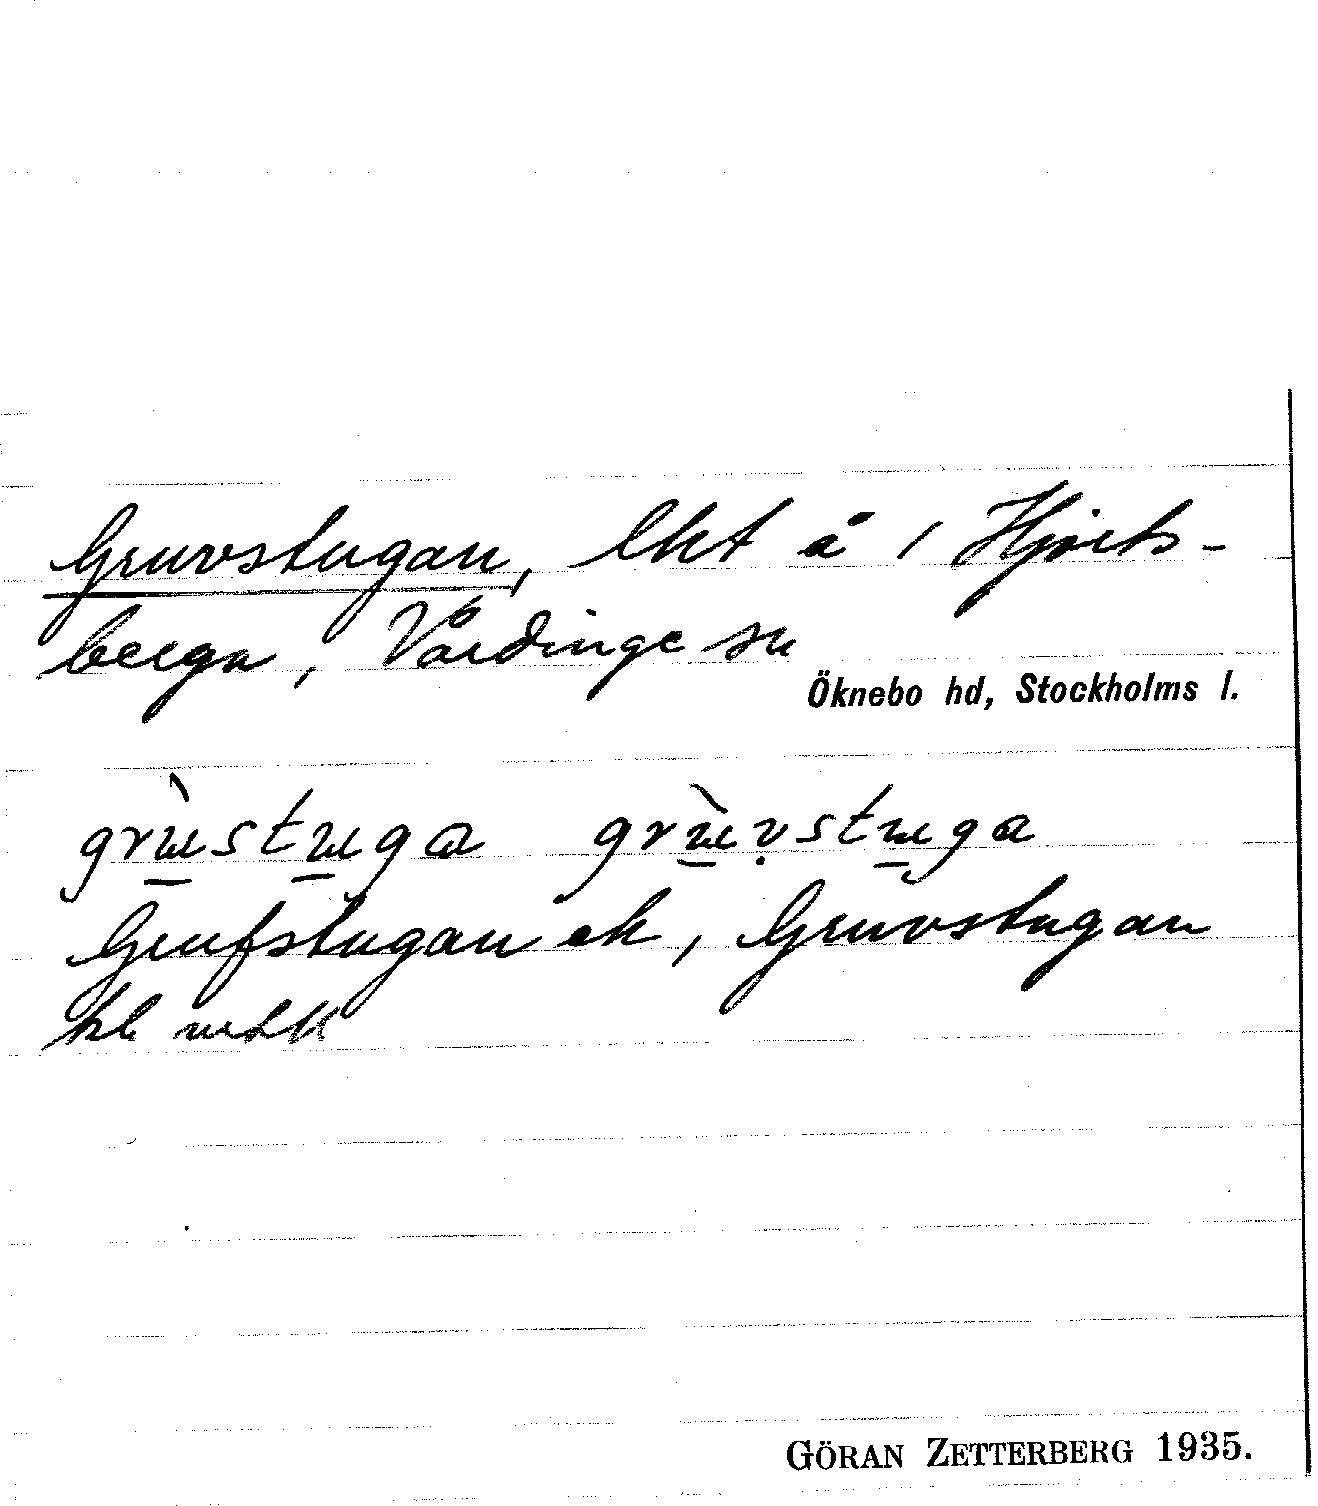 Gruvstugan, lht å 1 Hjorts-
berga, Vårdinge sn
Öknebo hd, Stockholms l.
grùstuga grùvstuga
Grufstugan ek, Gruvstugan
hl
GÖRAN ZETTERBERG 1935.